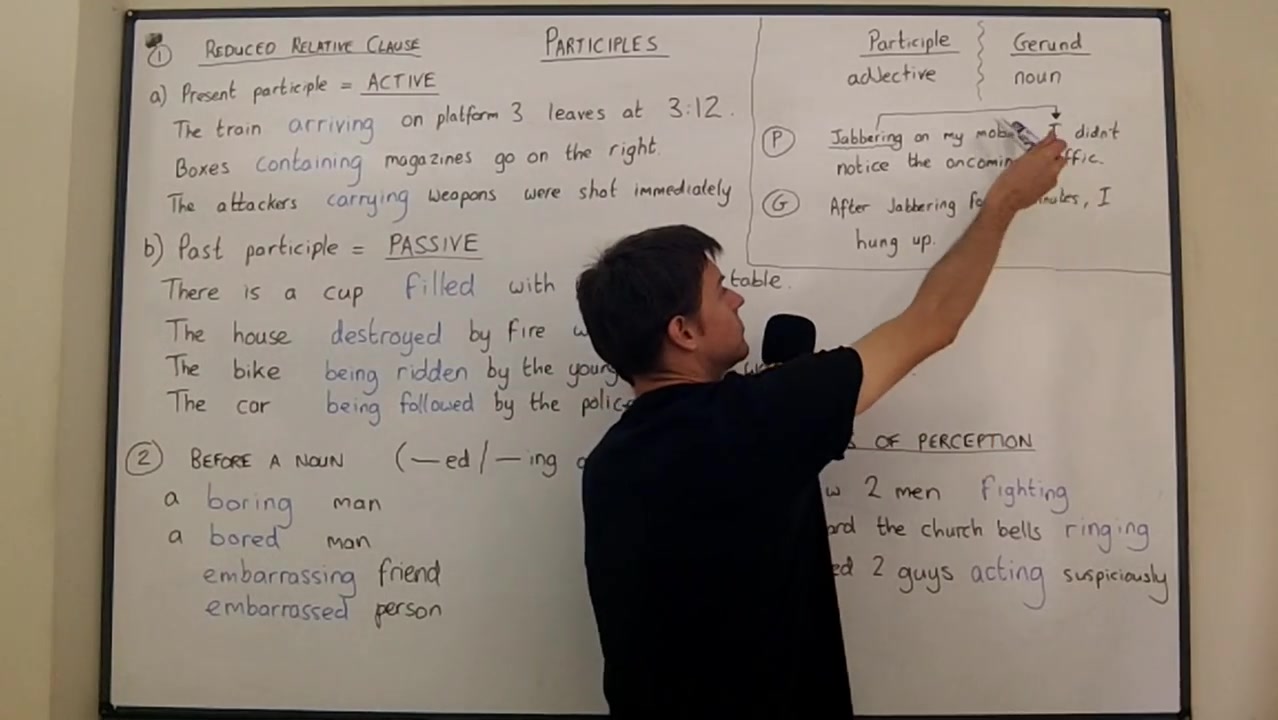 ① REDUCED RELATIVE CLAUSE
PARTICIPLES
a) Present participle = ACTIVE
The train arriving on platform 3 leaves at 3:12.
Boxes containing magazines go on the right.
The attackers carrying weapons were shot immediately
b) Past participle = PASSIVE
There is a cup filled with table.
The house destroyed by fire
The bike being ridden by the young
The car being followed by the police
② BEFORE A NOUN (—ed / —ing
a boring man
a bored man
embarrassing friend
embarrassed person
Participle Gerund
adjective noun
Ⓟ Jabbering on my I didn't
notice the
Ⓖ After Jabbering , I
hung up.
OF PERCEPTION
2 men fighting
the church bells ringing
2 guys acting suspiciously